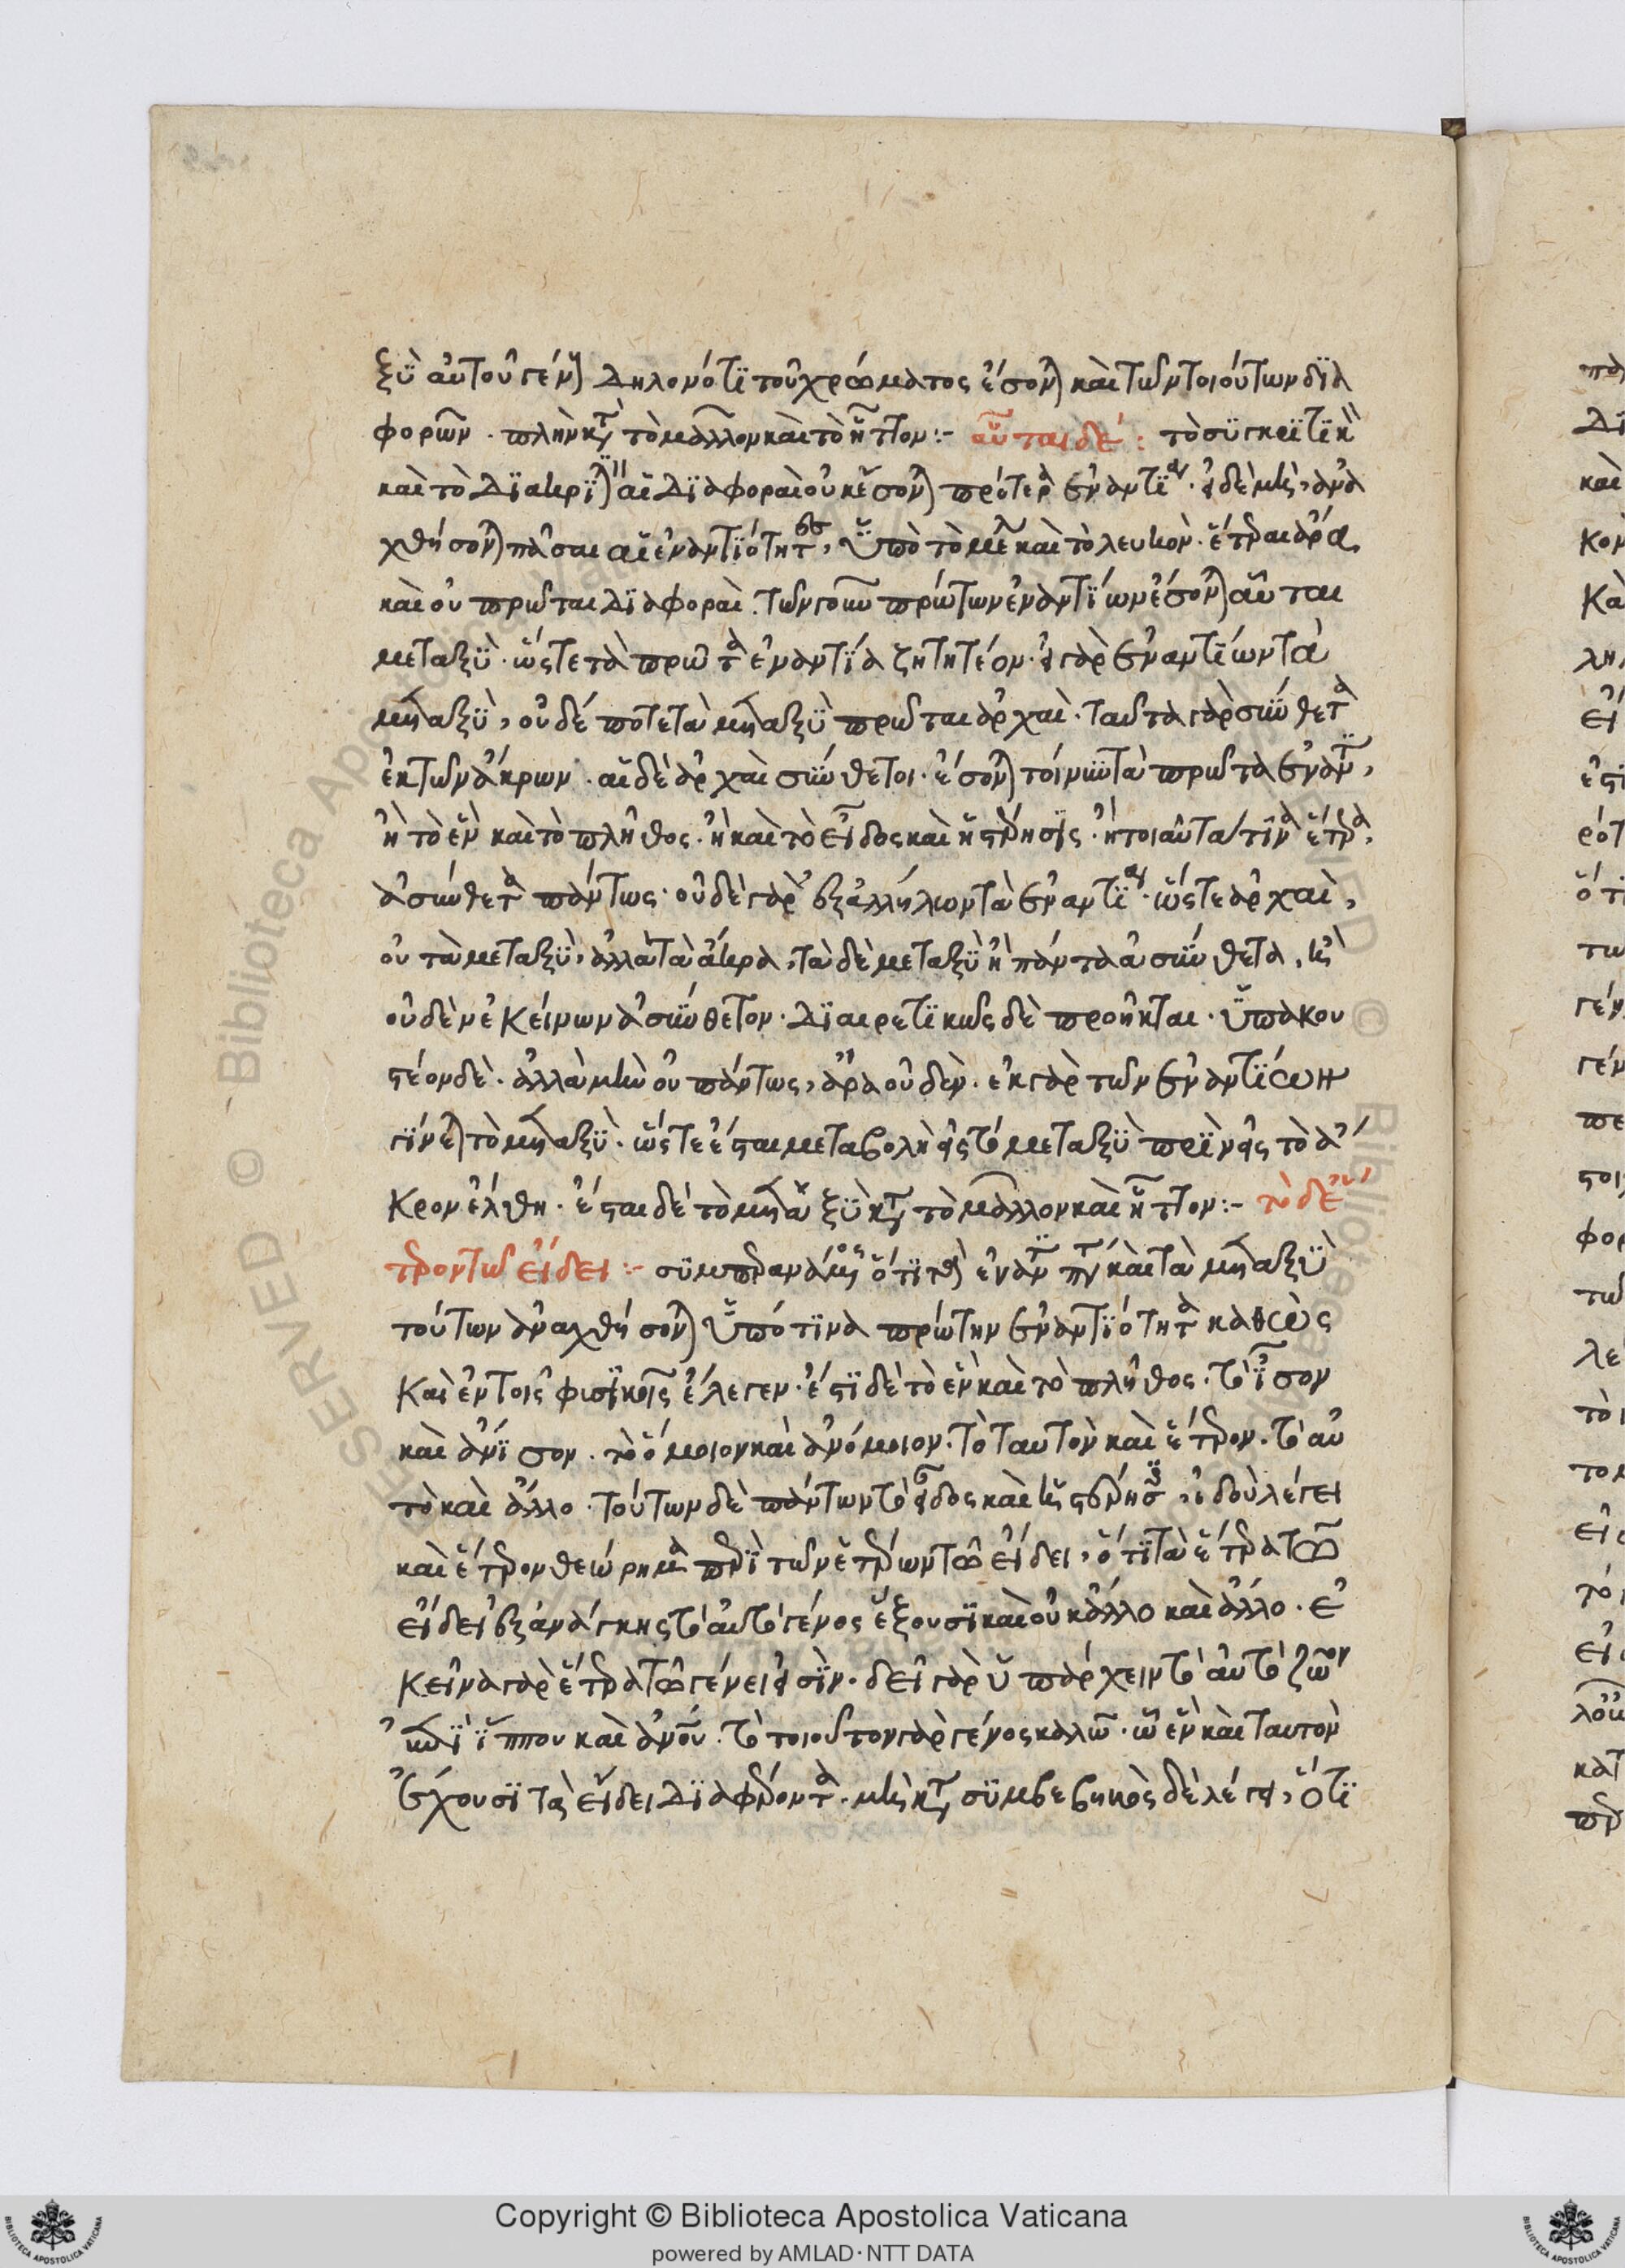 ξὺ αὐτοῦ γένη δηλονότι τοῦ χρώματος ἔσονται καὶ τῶν τοιούτων δια
φορῶν · πλὴν κατὰ τὸ μᾶλλον καὶ τὸ ἧττον :- αὗται δέ : τὸ συγκριτικὸν
καὶ τὸ διακριτικὸν αἱ διαφοραὶ οὐκ ἔσονται πρότερα ἐναντία · εἰ δὲ μὴ, ἀνα
χθήσονται πᾶσαι αἱ ἐναντιότητες, ὑπὸ τὸ μέλαν καὶ τὸ λευκὸν · ἕτεραι ἄρα
καὶ οὐ πρῶται διαφοραὶ · τῶν γοῦν πρώτων ἐναντίων ἔσονται αὗται
μεταξὺ · ὥστε τὰ πρῶτα ἐναντία ζητητέον · εἰ γὰρ ἐναντίων τὰ
μεταξὺ, οὐδέ ποτε τὰ μεταξὺ πρῶται ἀρχαὶ · ταῦτα γὰρ σύνθετα
ἐκ τῶν ἄκρων · αἱ δὲ ἀρχαὶ σύνθετοι · ἔσονται τοίνυν τὰ πρῶτα ἐναντία,
ἢ τὸ ἓν καὶ τὸ πλῆθος · ἢ καὶ τὸ εἶδος καὶ ἡ στέρησις · ἢ τοιαῦτα τινὰ ἕτερα,
ἀσύνθετα πάντως · οὐδὲ γὰρ ἐξ ἀλλήλων τὰ ἐναντία · ὥστε ἀρχαὶ,
οὐ τὰ μεταξὺ, ἀλλὰ τὰ ἄκρα, τὰ δὲ μεταξὺ ἢ πάντα ἀσύνθετα, ἢ
οὐδὲν ἐκείνων ἀσύνθετον · διαιρετικῶς δὲ προῆκται · ὑπακου
στέον δὲ · ἀλλὰ μὴν οὐ πάντως, ἄρα οὐδὲν · ἐκ γὰρ τῶν ἐναντίων
γίνεται τὸ μεταξὺ · ὥστε ἔσται μεταβολὴ εἰς τὸ μεταξὺ πρὶν εἰς τὸ ἄ
κρον ἐλθῆ · ἔσται δὲ τὸ μεταξὺ κατὰ τὸ μᾶλλον καὶ ἧττον :- τὸ δὲ ἕ
τερον τῶ εἴδει :- συμπεράνας ὅτι τὰ ἐναντία πάντα καὶ τὰ μεταξὺ
τούτων ἀναχθήσονται ὑπό τινα πρώτην ἐναντιότητα καθὼς
καὶ ἐν τοῖς φισικοῖς ἔλεγεν · ἔστι δὲ τὸ ἓν καὶ τὸ πλῆθος · τὸ ἴσον
καὶ ἄνισον · τὸ ὅμοιον καὶ ἀνόμοιον · τὸ ταυτὸν καὶ ἕτερον · τὸ αὐ
τὸ καὶ ἄλλο · τούτων δὲ πάντων τὸ εἶδος καὶ ἡ στέρησις, ἰδοὺ λέγει
καὶ ἕτερον θεώρημα περὶ τῶν ἑτέρων τῶ εἴδει, ὅτι τὰ ἕτερα τῶ
εἴδει ἐξ ἀνάγκης τὸ αὐτὸ γένος ἕξουσι καὶ οὐκ ἄλλο καὶ ἄλλο · ἐ
κεῖνα γὰρ ἕτερα τῶ γένει εἰσὶν · δεῖ γὰρ ὑπάρχειν τὸ αὐτὸ ζῶον
ἵππου καὶ ἀνθρώπου · τὸ τοιοῦτον γὰρ γένος καλῶ · ὧ ἓν καὶ ταυτὸν
ἔχουσι τὰ εἴδει διαφέροντα · μὴ κατὰ συμβεβηκὸς δὲ λέγει, ὅτι